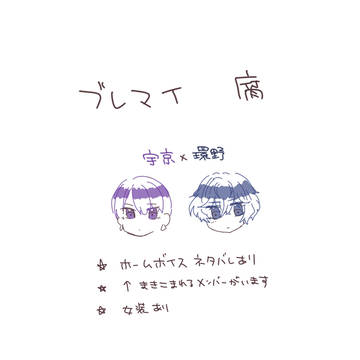 ブレマイ 腐
宇京×環野
☆ ホームボイス ネタバレあり
☆ ↑ まきこまれるメンバーがいます
☆ 女装あり